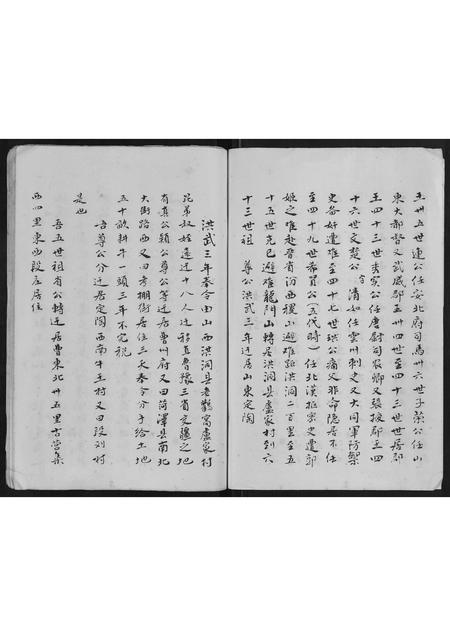 王卅五世連公任安北尉司馬卅六世子榮公任山
東大都督又武威郡王卅四世至四十三世世居郡
王四十三世秀实公任唐尉司农卿又張掖郡王四
十六世文楚公 清如任雲州刺史又大同軍防禦
史备好遭难至四十七世珙公痛父非命隐居不任
至四十九世希賢公（五代時）任北漢枢密史遭郭
姬之难赴晉省汾西稷山避难距洪洞二百里至五
十五世克已避难龍门山轉居洪洞縣盧家村列六
十三世祖 尊公洪武三年迁居山東定陶
洪武三年奉令由山西洪洞县老鸛窩盧家村
兄弟叔姪遥过十八人迁移直魯豫三省交疆之地
有真公穎公尊公等迁居曹州府又曰菏澤县南北
大街路西又曰考棚街居住三天奉令分予給土地
五十畝耕牛一頭三年不完税
吾尊公分迁居定陶西南牛王村又曰段刘村
是也
吾五世祖有公轉迁居曹東北卅五里古营集
西四里東西段庄居住